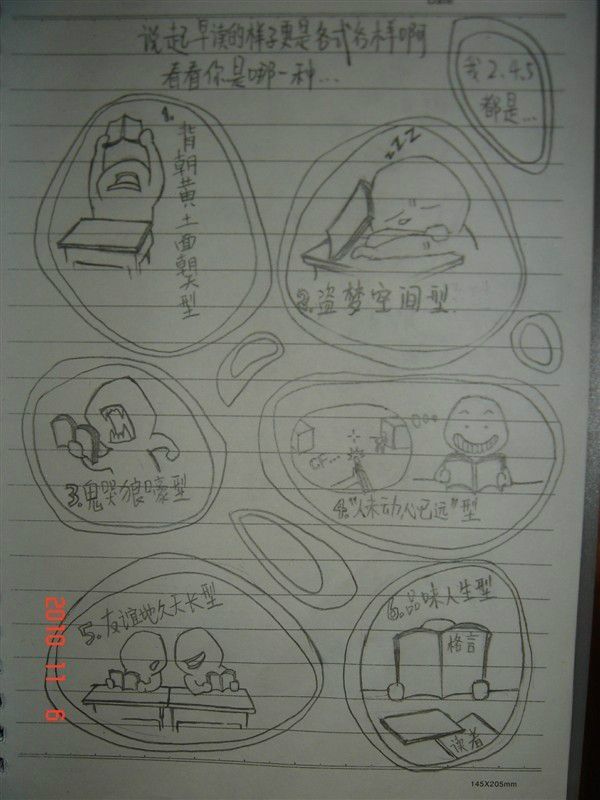 说起早读的样子更是各式各样啊
看看你是哪一种...
我2.4.5
都是...
1.
背朝黄土面朝天型
zzZ
2.盗梦空间型
3.鬼哭狼嚎型
CF...
4."人未动心已远"型
5.友谊地久天长型
6.品味人生型
格言
读者
2010 11 6
145X205mm